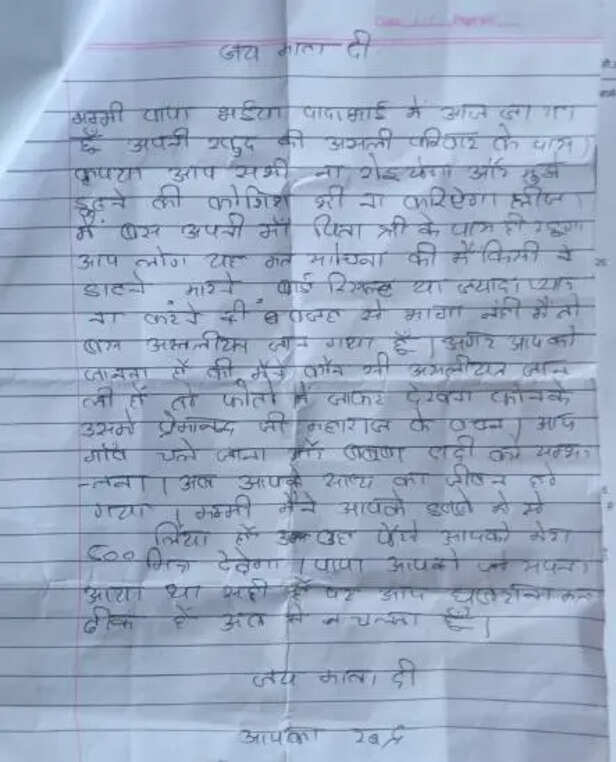 जय माता दी
मम्मी पापा भईया पापा में आज जा रहा
हूँ अपनी खुद की असली परिवार के पास
कृपया आप सभी ना रोइयेगा और मुझे
ढूढने की कोशिश भी ना करिएगा प्लीज
में बस अपनी माँ पिता श्री के पास ही रहूंगा
आप लोग यह मत सोचना की में किसी ने
डाटने मारने बोर्ड रिजल्ट या ज्यादा प्यार
ना करने की वजह से भागा नहीं में तो
बस असलीयत जान गया हूँ। अगर आपको
जानना है की मैने कौन सी असलीयत जान
ली है तो फोन में जाकर देखना फोन के
उसमे प्रेमानन्द जी महाराज के वचन। आप
गाँव चले जाना माँ दादी को सम्भा
-लना। अब आपके साथ का जीवन हो
गया। मम्मी मैने आपके डब्बे में से
500 लिया हैं वह पैसे आपको मेरा
मित्र देदेगा। पापा आपको जो सपना
आया था सही है पर आप घबराना मत
ठीक है अंत में चलता हूँ।
जय माता दी
आपका